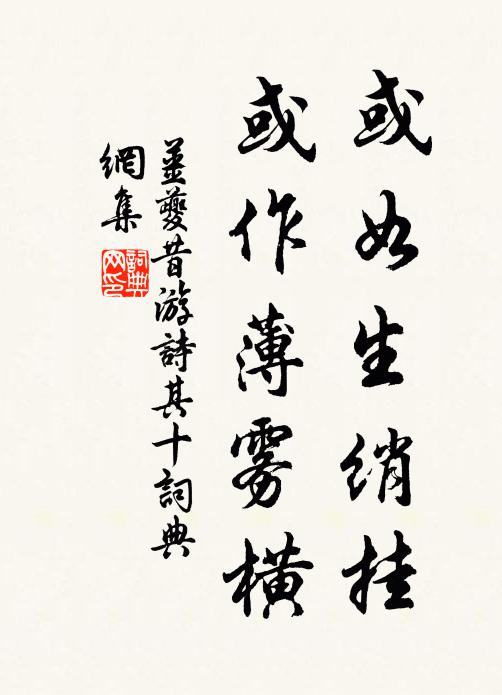 或如生綃挂
或作薄雾橫
姜夔昔游詩其十詞典
網集
詞典
网印